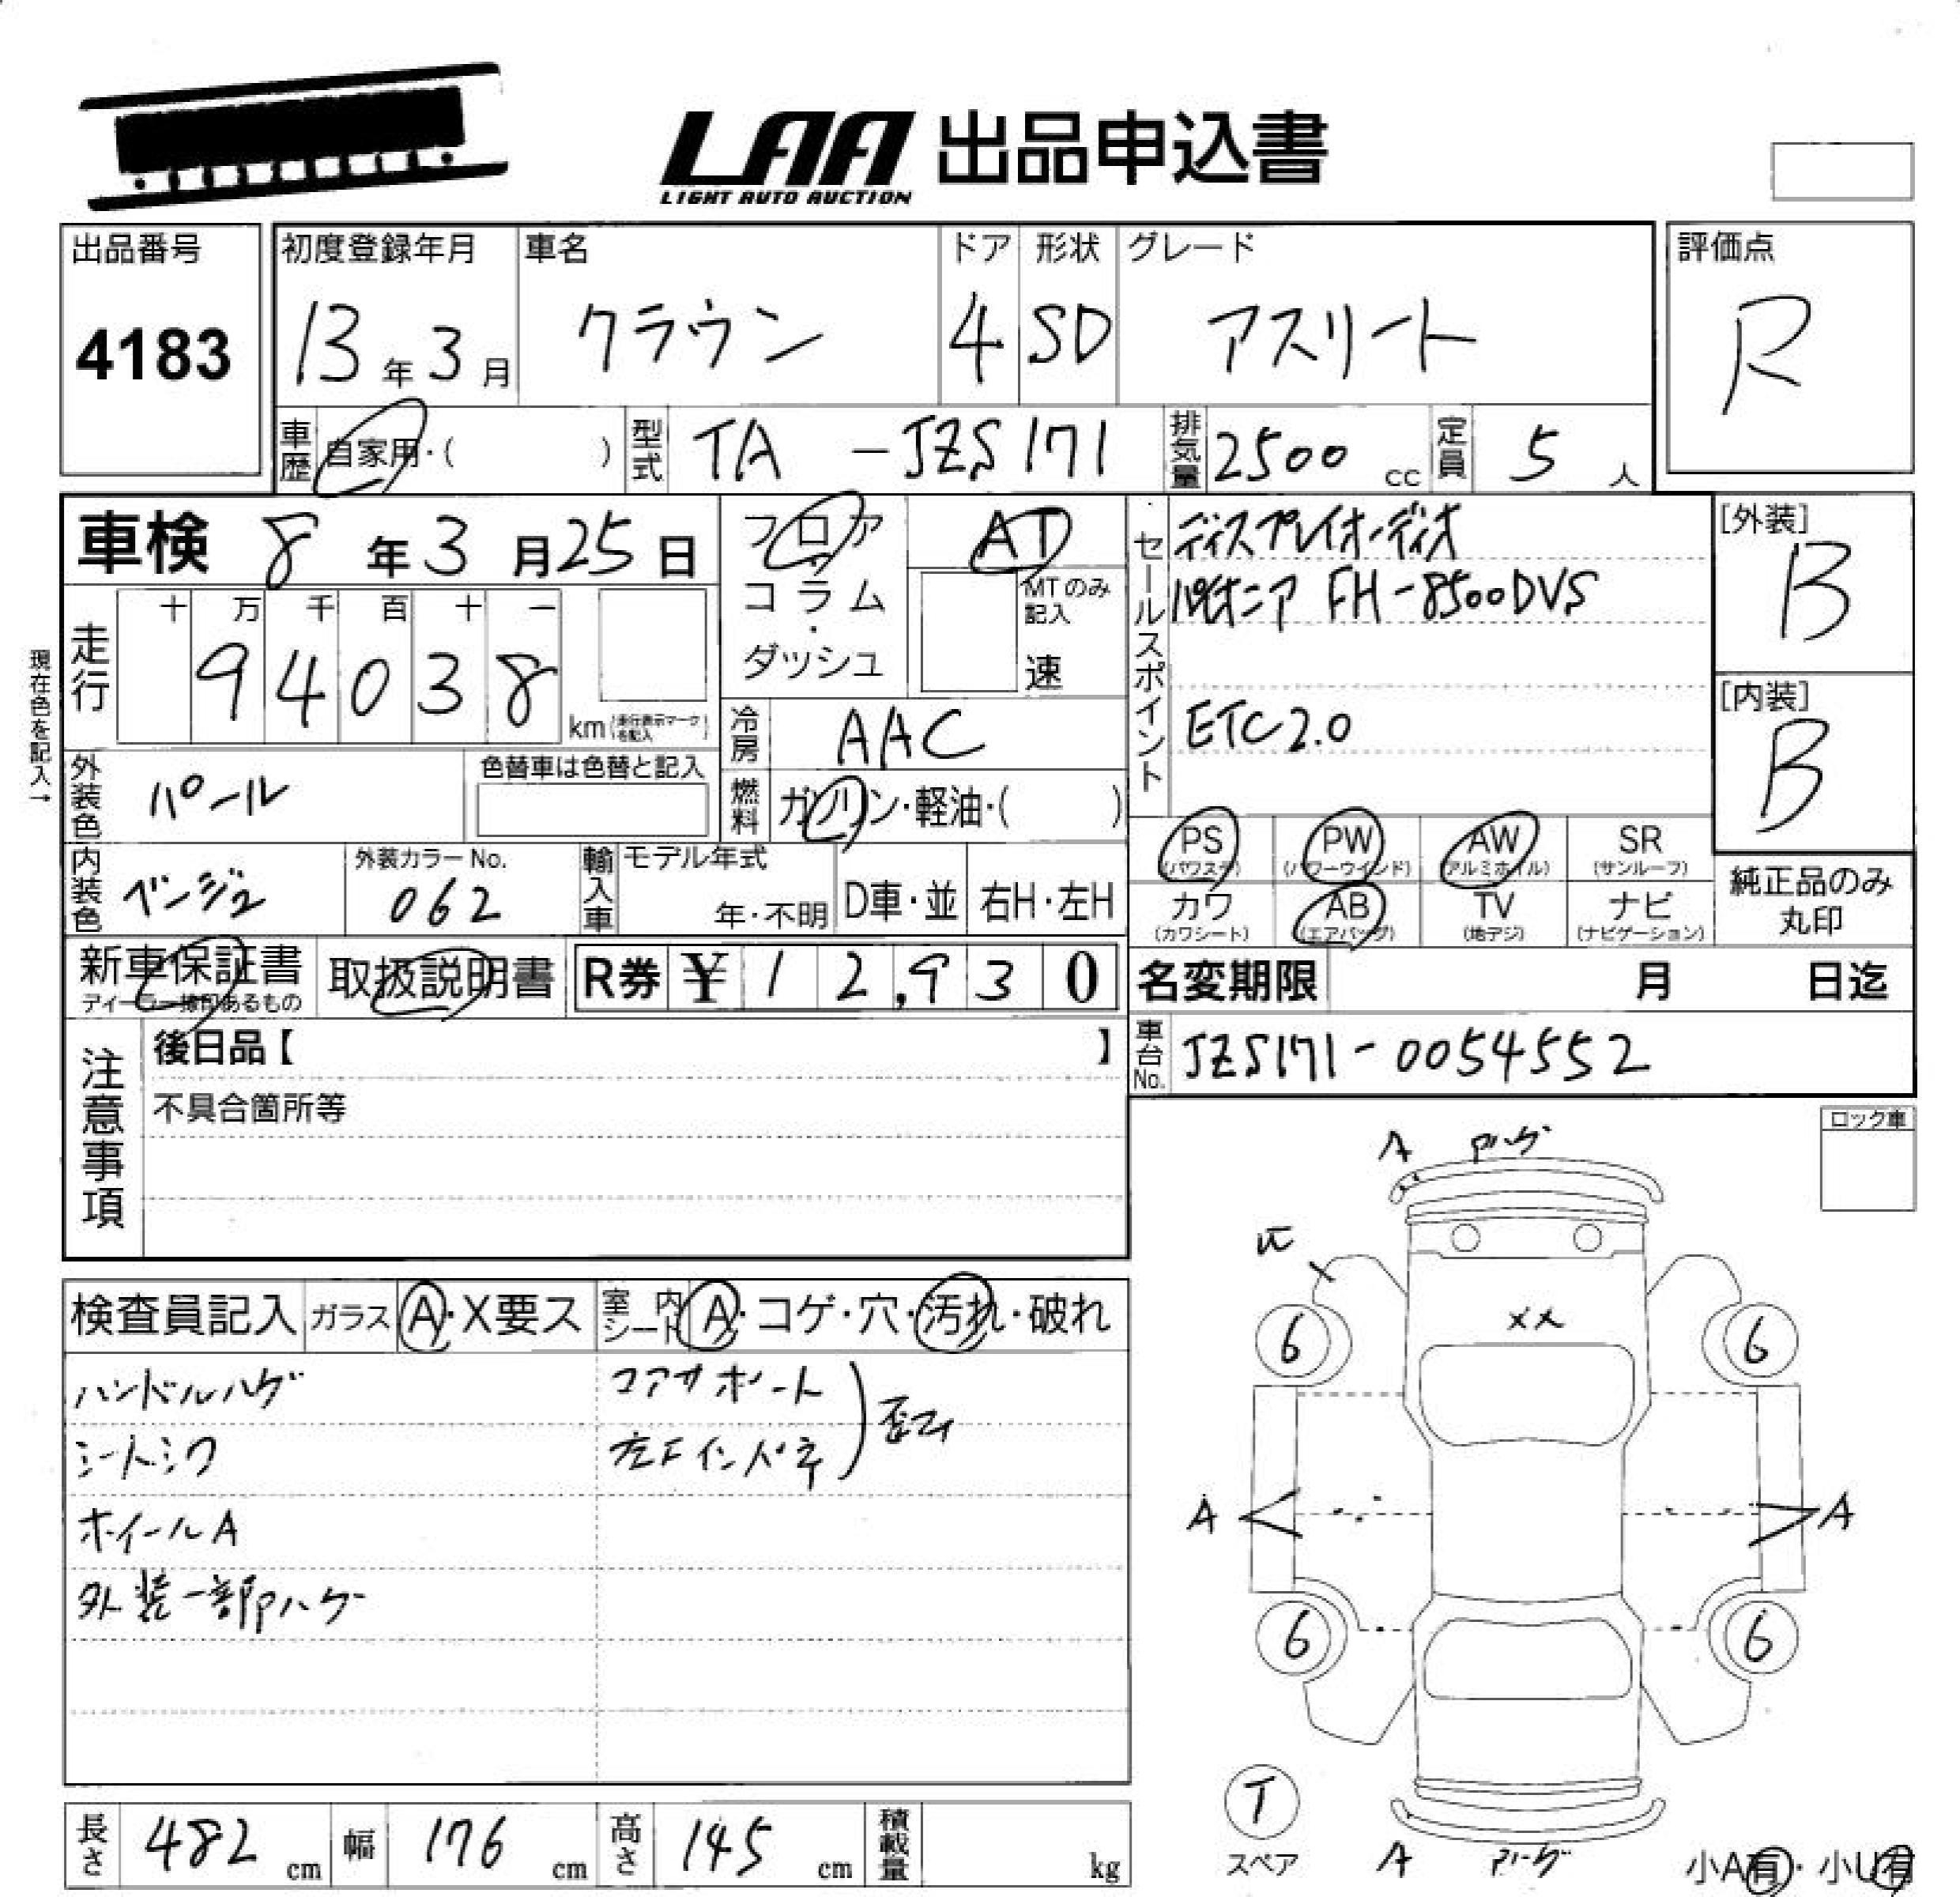 LAA 出品申込書
LIGHT AUTO AUCTION
出品番号
4183
初度登録年月
13年3月
車名
クラウン
ドア
4
形状
SD
グレード
アスリート
評価点
R
車歴 自家用・( )
型式 TA-JZS171
排気量 2500cc
定員 5人
車検 8年3月25日
フロア・コラム・ダッシュ
AT
MTのみ記入
速
セールスポイント
ディスプレイオーディオ
パイオニア FH-8500DVS
ETC2.0
[外装]
B
[内装]
B
現在色を記入→
走行
十 万 千 百 十 一
94038
km(走行表示マークを記入)
冷房 AAC
外装色 パール
色替車は色替と記入
燃料 ガソリン・軽油・( )
PS (パワステ)
PW (パワーウインド)
AW (アルミホイル)
SR (サンルーフ)
カワ (カワシート)
AB (エアバッグ)
TV (地デジ)
ナビ (ナビゲーション)
純正品のみ丸印
内装色 ベージュ
外装カラーNo.
062
輸入車
モデル年式
年・不明
D車・並
右H・左H
新車保証書
ディーラー捺印あるもの
取扱説明書
R券 ¥12,930
名変期限 月 日迄
車台No. JZS171-0054552
注意事項
後日品【 】
不具合箇所等
ロック車
A Pハゲ
XX
6
6
A
A
6
6
T
スペア
A Pハゲ
小A有・小U有
検査員記入
ガラス A・X要ス
室内シート A・コゲ・穴・汚れ・破れ
ハンドルハゲ
シートシワ
ホイールA
外装一部Pハゲ
コアサポート
左Fインパネ
歪み
長さ 482cm
幅 176cm
高さ 145cm
積載量 kg